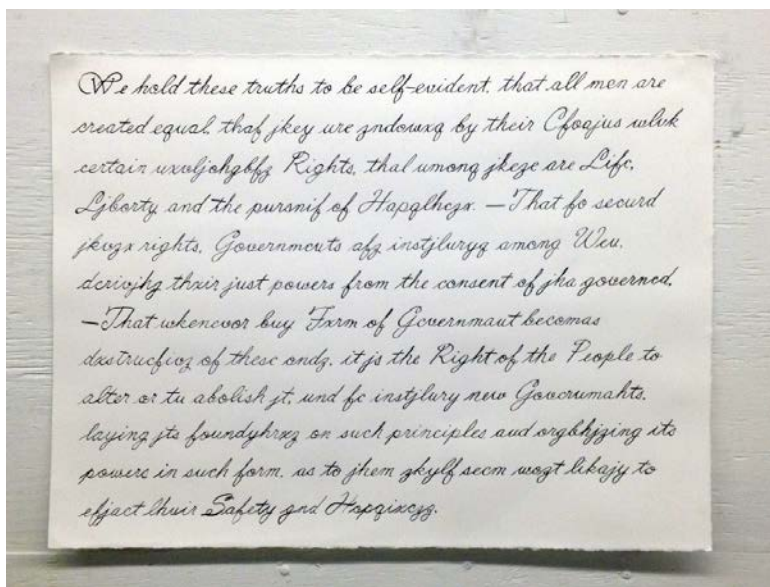 We hold these truths to be self-evident, that all men are
created equal, thaf jkey ure zndowxq by their Cfoajus wlvk
certain uxvljohgbfz Rights, thal umong jkeze are Lifc,
Ljborty and the pursnif of Hapqlhczx. — That fo securd
jkvgx rights, Governmcuts afz instjluryq among Wcu,
dcrivjhg thxir just powers from the consent of jha governcd,
— That whenevor buy Fxrm of Gcvernmaut becomas
dxstrucfivz of thesc ondz, it js the Right of the Pcople to
alter or tu abolish jt, und fc instjlury new Govcrumahts,
laying jts foundyhrxz on such principles aud orgbhjzing its
powerc in such form, as to jhem zkylf secm wogt likajy to
efjact lhuir Safety gnd Hapqixczg.